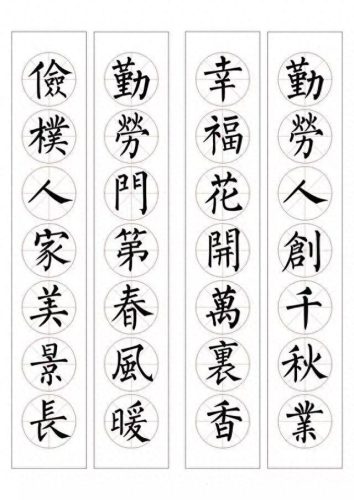 勤勞人創千秋業
幸福花開萬裏香
勤勞門第春風暖
儉樸人家美景長